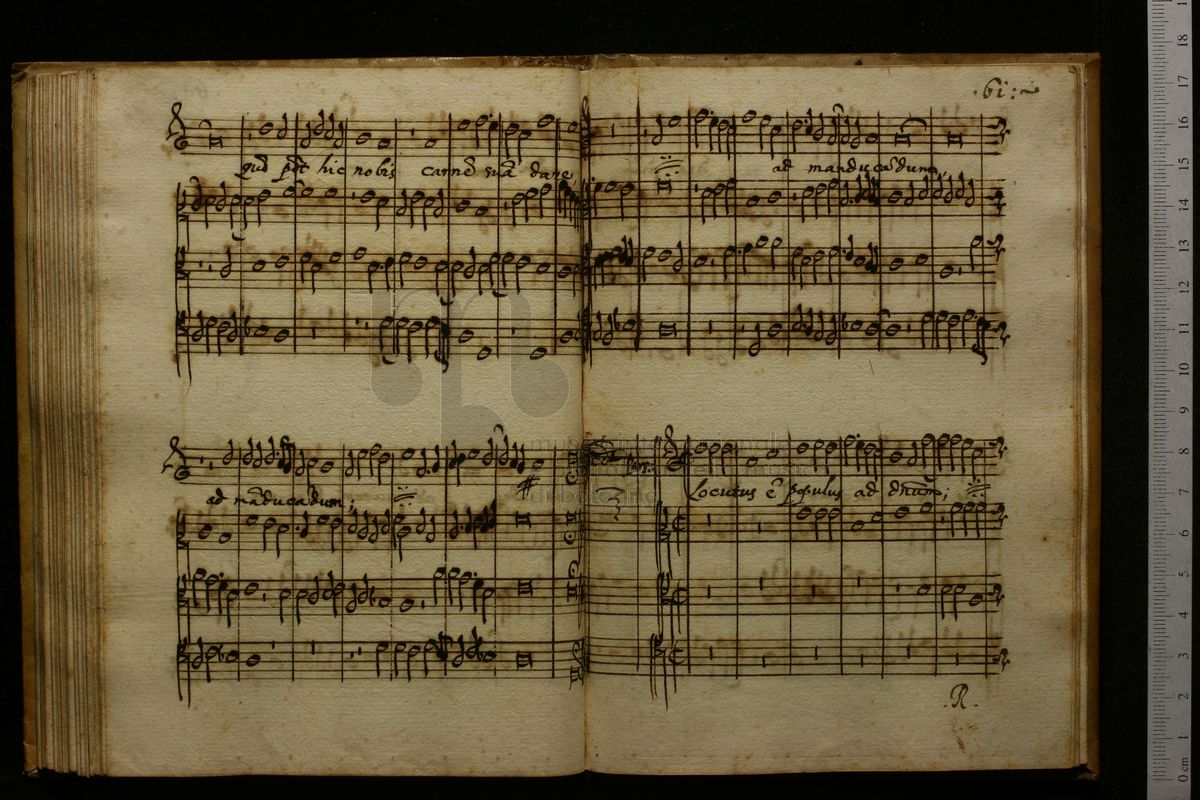 .61:~
quõ põt hic nobis carnẽ suã dare,
ad manducãdum,
ad mãducãdum;
Locutus ẽ populus ad dñum;
.R.
18
17
16
15
14
13
12
11
10
9
8
7
6
5
4
3
2
1
0 cm